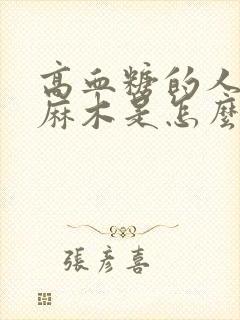 高血糖的人
麻木是怎麼
張彥喜